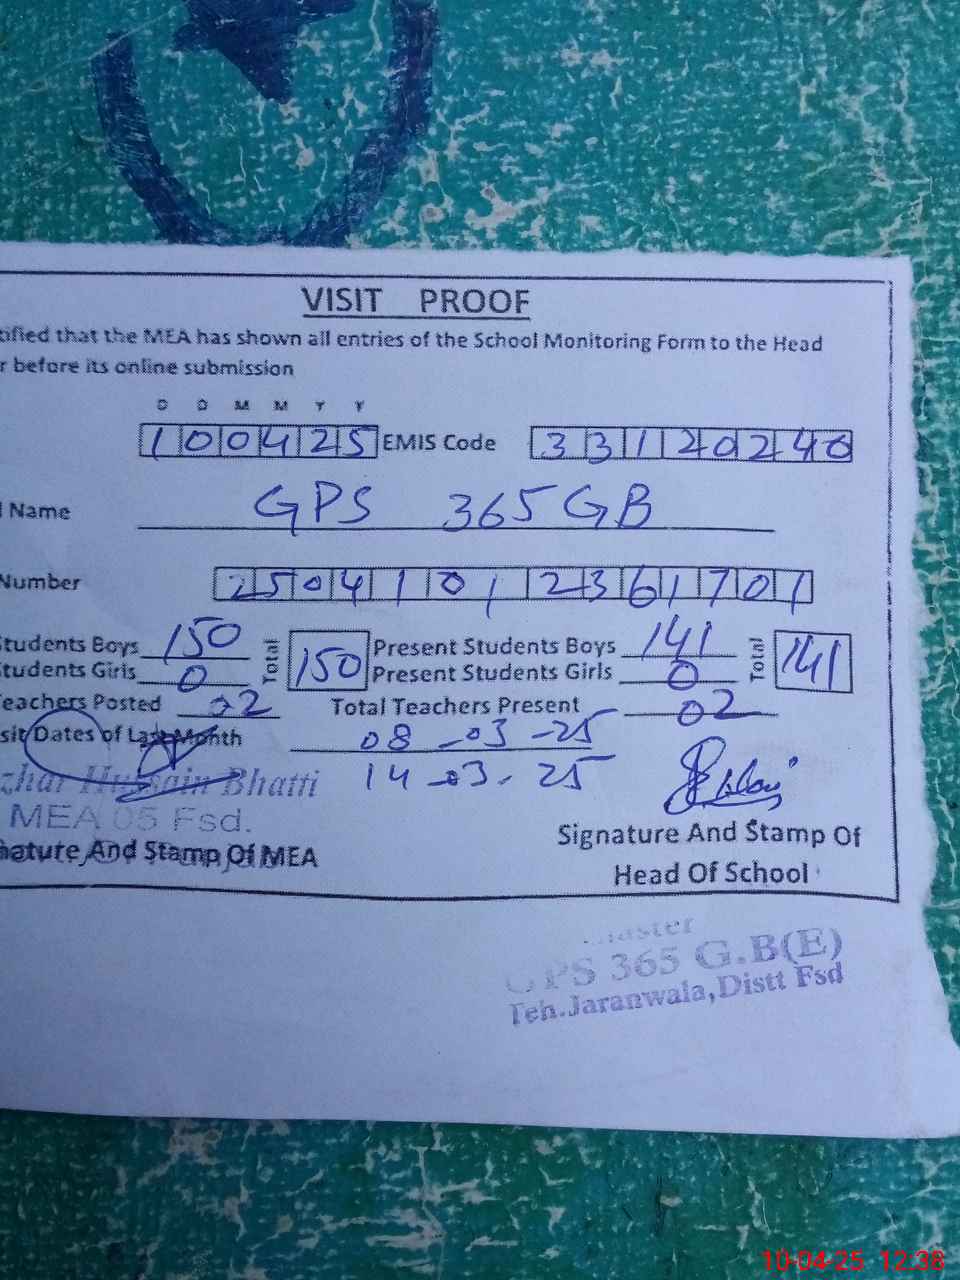 VISIT PROOF
tified that the MEA has shown all entries of the School Monitoring Form to the Head
r before its online submission
D D M M Y Y
100425 EMIS Code 33120240
l Name GPS 365 GB
Number 25041012361701
tudents Boys 150 Total 150 Present Students Boys 141 Total 141
tudents Girls 0 Present Students Girls 0
eachers Posted 02 Total Teachers Present 02
sit Dates of Last Month 08-03-25
14-03-25
zhar Hussain Bhatti
MEA 05 Fsd.
nature And Stamp Of MEA
Signature And Stamp Of
Head Of School
GPS 365 G.B(E)
Teh.Jaranwala,Distt Fsd
10-04-25 12.38